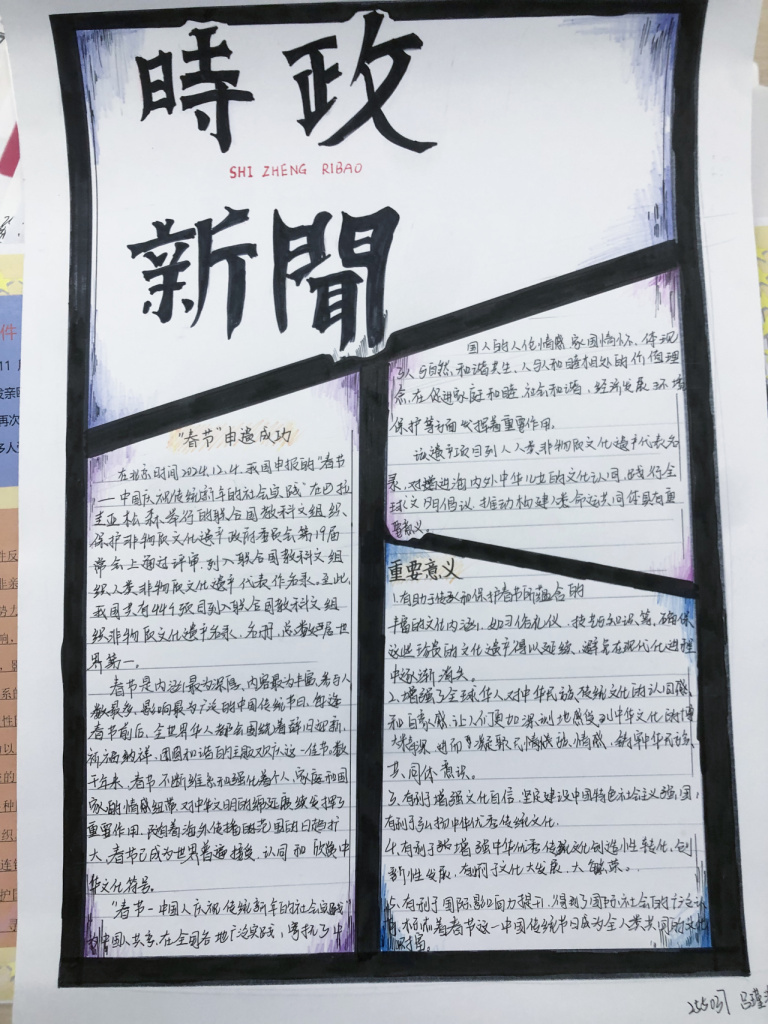 時政
SHI ZHENG RIBAO
新聞
"春节"申遗成功
在北京时间2024.12.4.我国申报的"春节
——中国人庆祝传统新年的社会实践"在巴拉
圭亚松森举行的联合国教科文组织
保护非物质文化遗产政府委员会第19届
常会上通过评审,列入联合国教科文组
织人类非物质文化遗产代表作名录。至此,
我国共有44个项目列入联合国教科文组
织非物质文化遗产名录、名册,总数居世
界第一。
春节是内涵最为深厚、内容最为丰富、参与人
数最多、影响最为广泛的中国传统节日,每逢
春节前后,全世界华人都会围绕着辞旧迎新、
祈福纳祥、团圆和谐的主题欢庆这一佳节。数
千年来,春节不断维系和强化着个人、家庭和国
家的情感纽带,对中华文明的绵延赓续发挥了
重要作用。随着海外传播的范围的日趋扩
大,春节已成为世界普遍接受、认同和欣赏中
华文化符号。
"春节-中国人庆祝传统新年的社会实践"
为中国人共享,在全国各地广泛实践,寄托了中
国人的人伦情感、家国情怀,体现
了人与自然和谐共生、人与人和睦相处的价值理
念,在促进家庭和睦、社会和谐、经济发展、环境
保护等方面发挥着重要作用。
该遗产项目列入人类非物质文化遗产代表名
录,对增进海内外中华儿女的文化认同,践行全
球文明倡议,推动构建人类命运共同体具有重
要意义。
重要意义
1.有助于传承和保护春节所蕴含的
丰富的文化内涵,如习俗礼仪、技艺知识等,确保
这些珍贵的文化遗产得以延续,避免在现代化进程
中逐渐消失。
2.增强了全球华人对中华民族传统文化的认同感
和自豪感,让人们更加深刻地感受到中华文化的博
大精深,进而凝聚民族情感,铸牢中华民族
共同体意识。
3.有利于增强文化自信,坚定建设中国特色社会主义强国,
有利于弘扬中华优秀传统文化.
4.有利于增强中华优秀传统文化创造性转化、创
新性发展,有利于文化大发展、大繁荣。
5.有利于国际影响力提升,得到了国际社会的广泛认
可,标志着春节这一中国传统节日成为全人类共同的文化
财富。
2550班